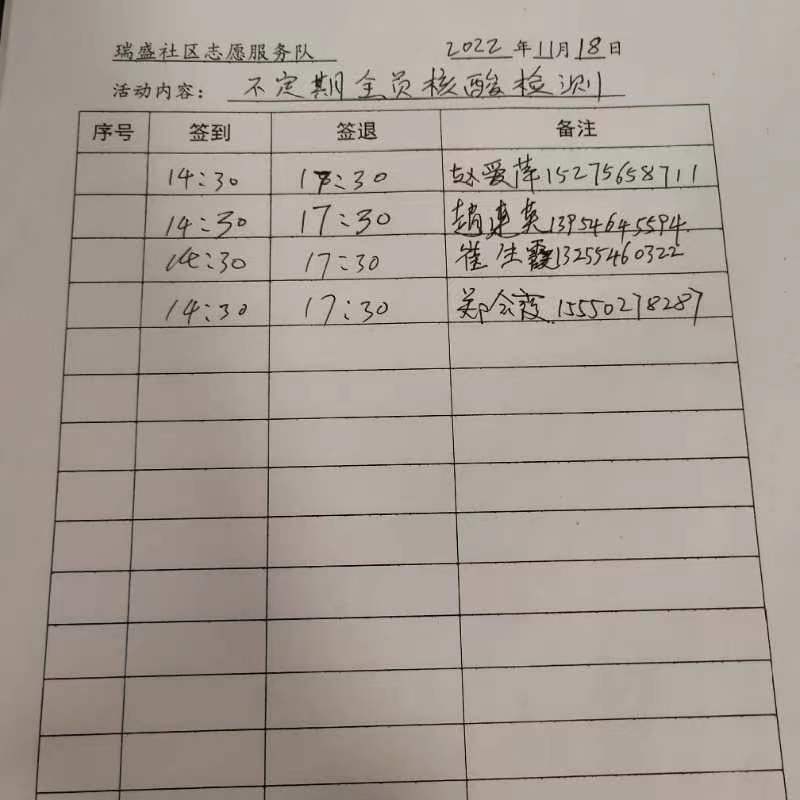 瑞盛社区志愿服务队 2022年11月18日
活动内容：不定期全员核酸检测
序号 签到 签退 备注
14:30 17:30 赵爱萍15275658711
14:30 17:30 趙連英13954645594
14:30 17:30 崔生霞13255460322
14:30 17:30 郑会霞15550278287